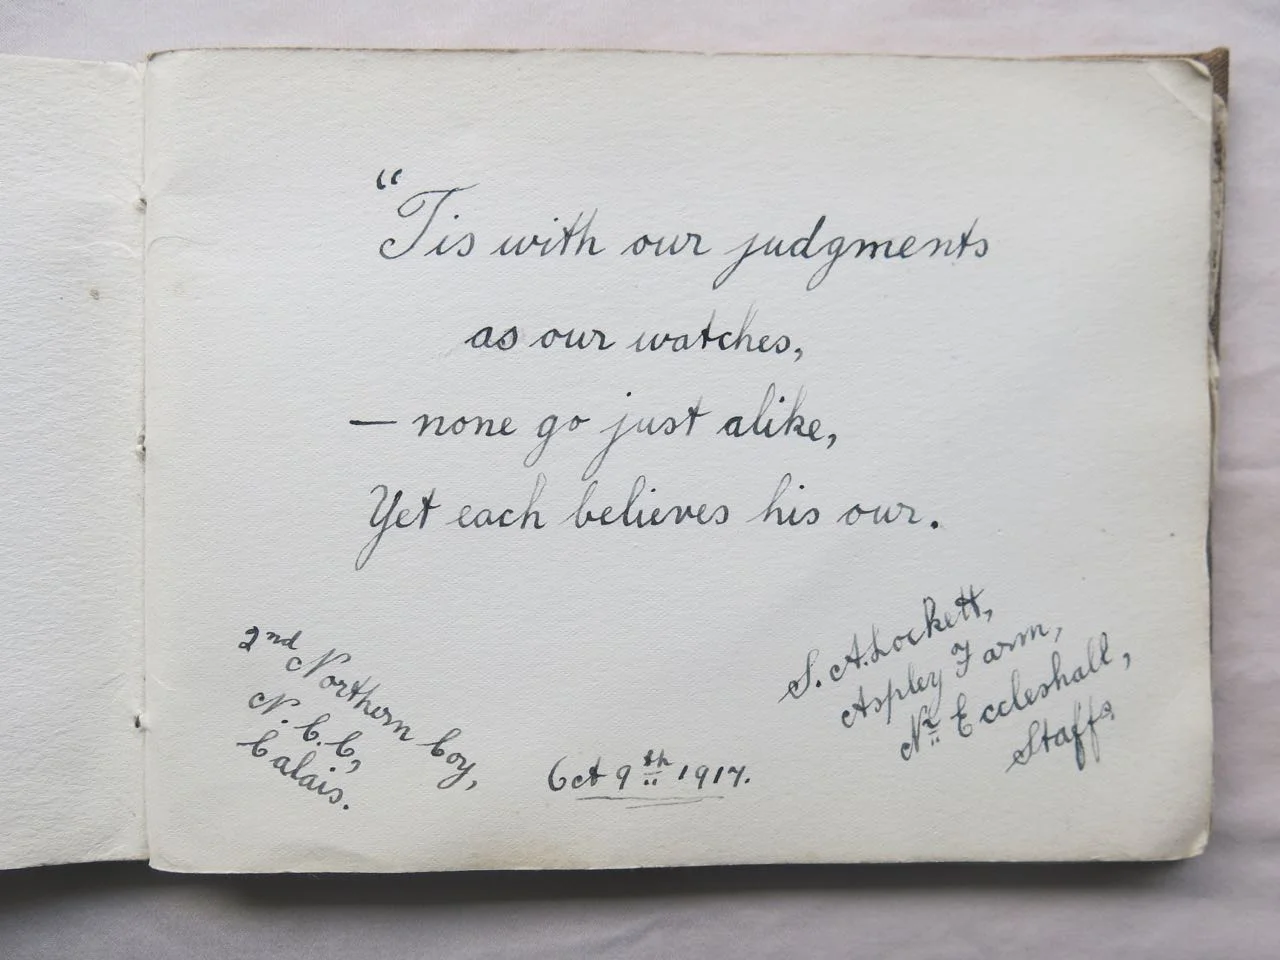 “Tis with our judgments
as our watches,
— none go just alike,
Yet each believes his our.
2nd Northern Coy,
N.C.C,
Calais.
Oct 9th 1917.
S. A. Lockett,
Aspley Farm,
Nr Eccleshall,
Staffs